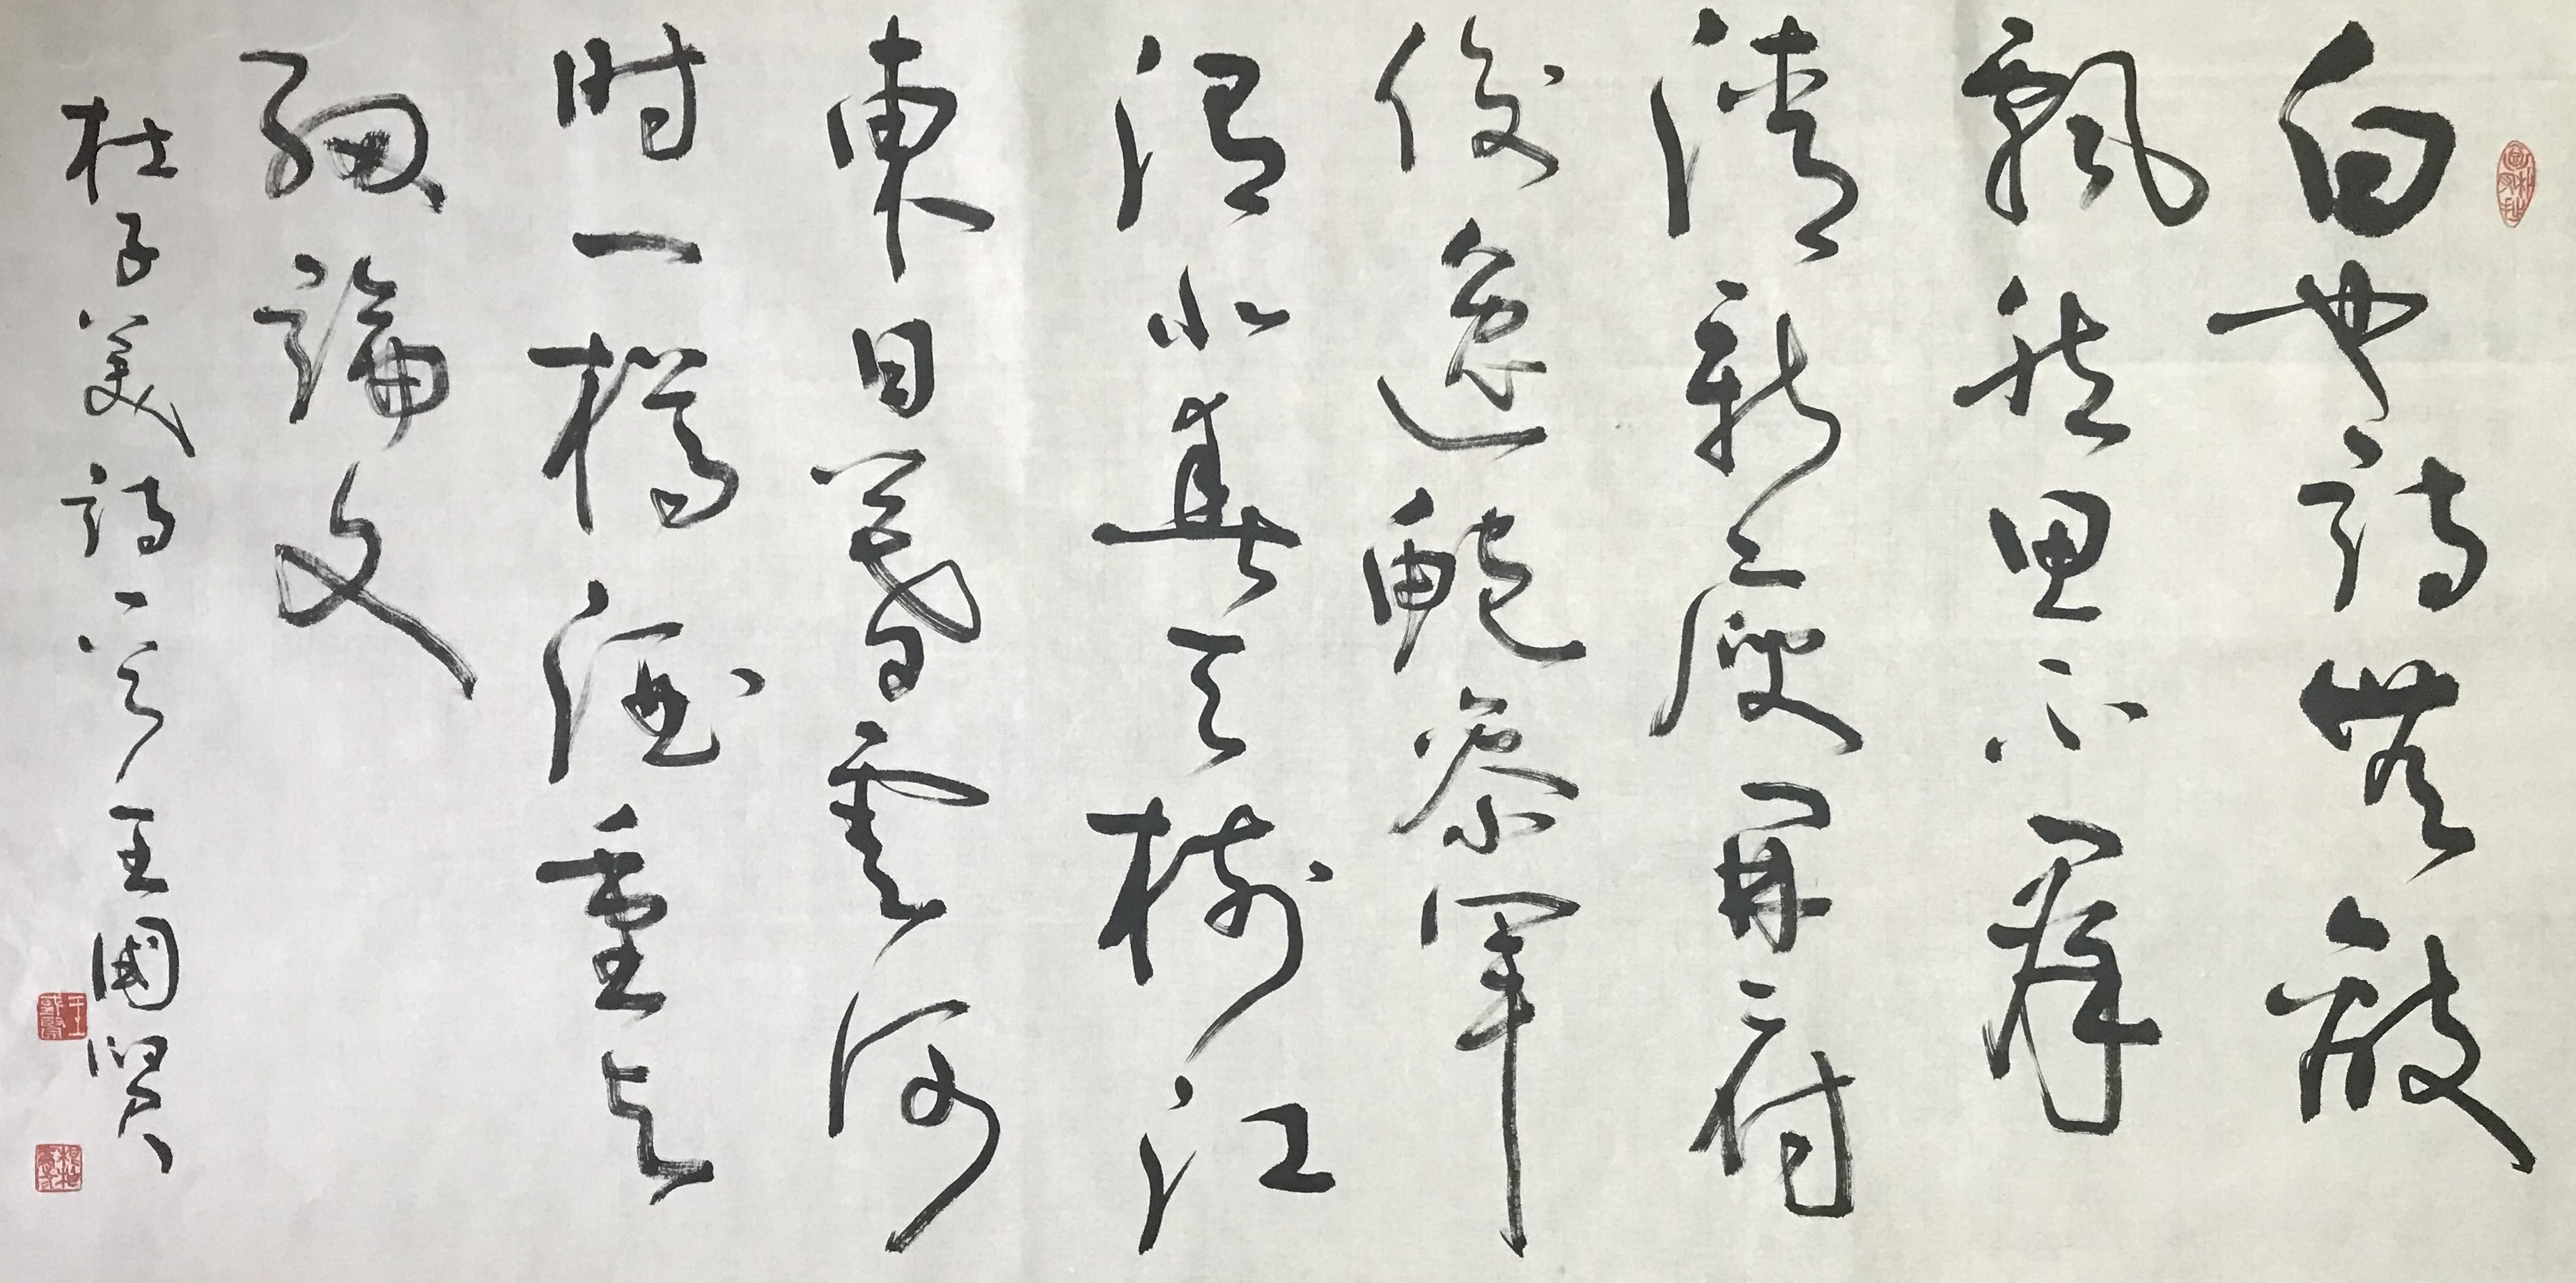 白也詩無敵
飄然思不羣
清新庾開府
俊逸鮑參軍
渭北春天樹江
東日暮雲何
时一樽酒重與
細論文
杜子美詩一首 王國賢